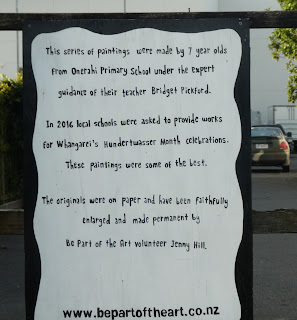 This series of paintings were made by 7 year olds
from Onerahi Primary School under the expert
guidance of their teacher Bridget Pickford.
In 2016 local schools were asked to provide works
for Whangarei's Hundertwasser Month celebrations.
These paintings were some of the best.
The originals were on paper and have been faithfully
enlarged and made permanent by
Be Part of the Art volunteer Jenny Hill.
www.bepartoftheart.co.nz